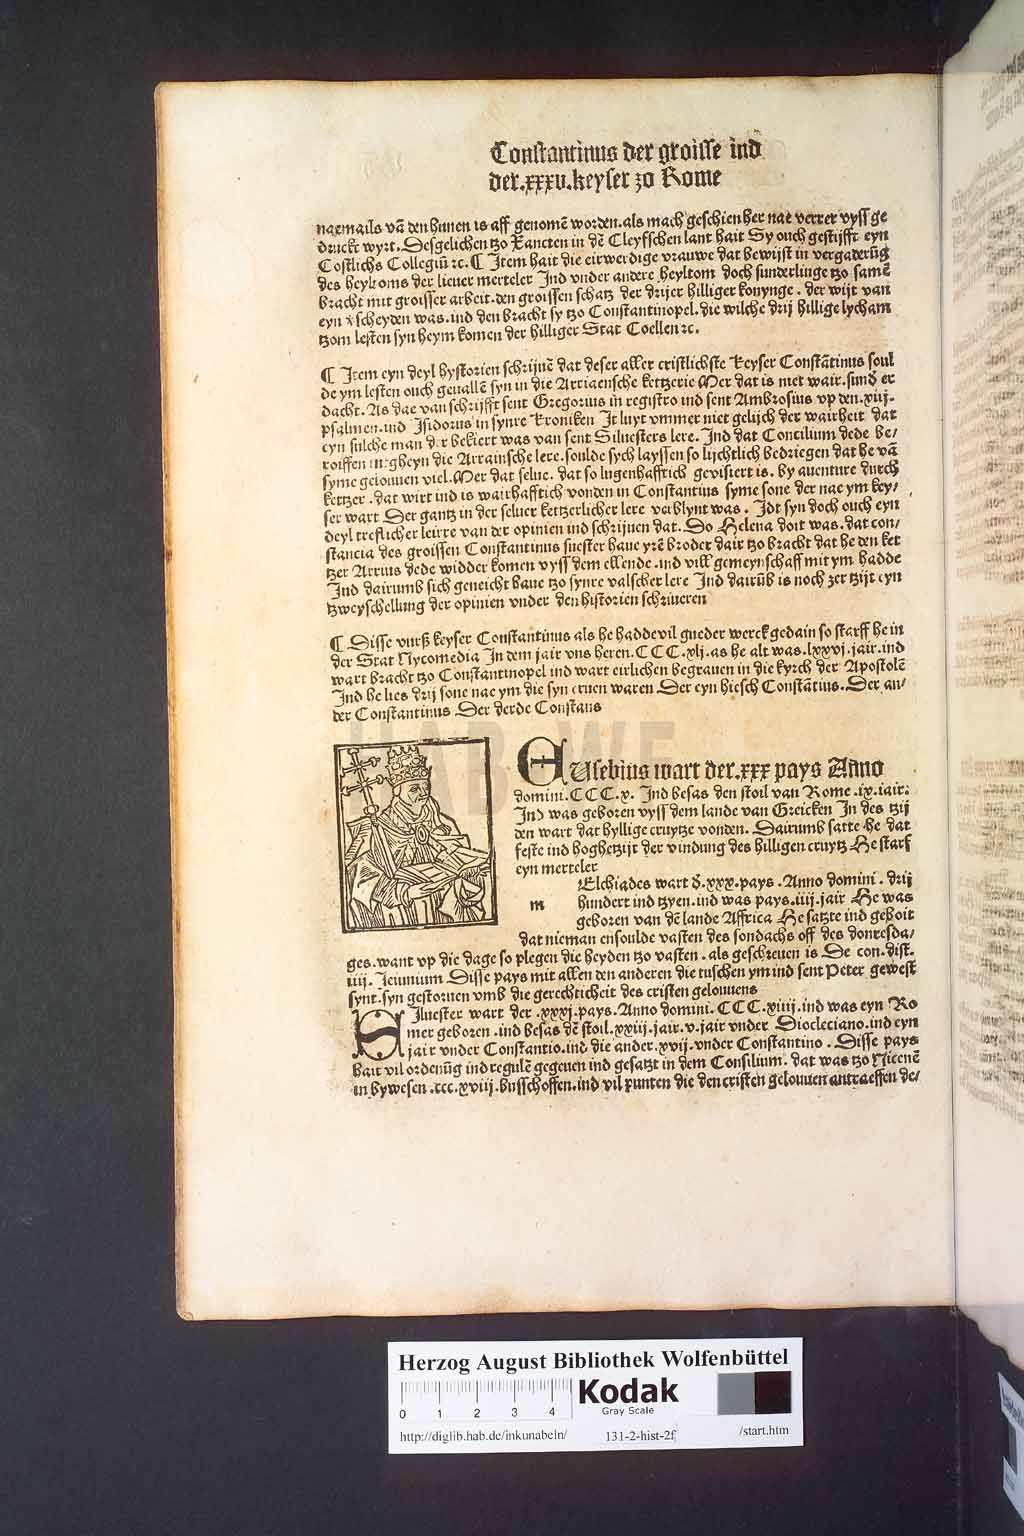 Constantinus der groisse ind
der.xxxv.keyser zo Rome
naemails vā den hunen is aff genomē worden.als mach geschien her nae verrer vyss ge
druckt wyrt. Desgelichen tzo Xancten in dē Cleyfschen lant hait Sy ouch gestijfft eyn
Costlichs Collegiū ꝛc. ¶ Item hait die eirwerdige vrauwe dat bewijst in vergaderūg
des heyltoms der lieuer merteler Ind vnder andere heyltom doch sunderlinge tzo samē
bracht mit groisser arbeit.den groissen schatz der drijer hilliger konynge. der wijt van
eyn vscheyden was.ind den bracht sy tzo Constantinopel.die wilche drij hillige lycham
tzom lesten syn heym komen der hilliger Stat Coellen ꝛc.
¶ Item eyn deyl hystorien schrijuē dat deser aller cristlichste keyser Constātinus soul
de ym lesten ouch geuallē syn in die Arriaensche kettzerie Mer dat is niet wair.sind er
dacht. As dae van schrijfft sent Gregorius in registro ind sent Ambrosius vp den.xiij.
psalmen.ind Isidorus in synre kroniken It luyt vmmer niet gelijch der wairheit dat
eyn sulche man der bekiert was van sent Siluesters lere. Ind dat Concilium dede be/
roiffen intgheyn die Arrainsche lere.soulde sych layssen so lijchtlich bedriegen dat he vā
syme gelouuen viel. Mer dat selue. dat so lugenhafftich gevisiert is. by auenture durch
kettzer. dat wirt ind is wairhafftich vonden in Constantius syme sone der nae ym key/
ser wart Der gantz in der seluer kettzerlicher lere verblynt was. Idt syn doch ouch eyn
deyl treflicher leirre van der opinien ind schrijuen dat. Do Helena doit was. dat con/
stancia des groissen Constantinus suester haue yrē broder dair tzo bracht dat he den ket
tzer Arrius dede widder komen vyss dem ellende.ind vill gemeynschaff mit ym hadde
Ind dairumb sich geneicht haue tzo synre valscher lere Ind dairūb is noch zer tzijt eyn
tzweyschellung der opinien vnder den historien schriueren
¶ Disse vurß keyser Constantinus als he hadde vil gueder werck gedain so starff he in
der Stat Nycomedia In dem jair vns heren.CCC.xlj.as he alt was.lxxvj.jair.ind
wart bracht tzo Constantinopel ind wart eirlichen begrauen in die kyrch der Apostolē
Ind he lies drij sone nae ym die syn eruen waren Der eyn hiesch Constātius. Der an/
der Constantinus Der derde Constans
EUsebius wart der.xxx pays Anno
domini.CCC.x. Ind besas den stoil van Rome.ix.iair:
Ind was geboren vyss dem lande van Greicken In des tzij
den wart dat hyllige cruytze vonden. Dairumb satte he dat
feste ind hoghetzijt der vindung des hilligen cruytz He starf
eyn merteler
m Elchiades wart d.xxx.pays.Anno domini. drij
hundert ind tzyen.ind was pays.iiij.jair He was
geboren van dē lande Affrica He satzte ind geboit
dat nieman ensoulde vasten des sondachs off des donresda/
ges.want vp die dage so plegen die heyden tzo vasten.als geschreuen is De con.dist.
iiij. Jeiunium Disse pays mit allen den anderen die tuschen ym ind sent Peter gewest
synt.syn gestoruen vmb die gerechticheit des cristen gelouuens
SIluester wart der.xxxj.pays.Anno domini.CCC.xiiij.ind was eyn Ro
mer geboren.ind besas dē stoil.xxiij.jair.v.jair vnder Diocleciano.ind eyn
jair vnder Constantio.ind die ander.xvij.vnder Constantino. Disse pays
hait vil ordenūg ind regulē gegeuen ind gesatzt in dem Consilium. dat was tzo Nicenē
in bywesen.ccc.xviij.busschoffen.ind vil punten die den cristen gelouuen antraeffen de/
HAB WF
Herzog August Bibliothek Wolfenbüttel
0 1 2 3 4
Kodak
Gray Scale
http://diglib.hab.de/inkunabeln/ 131-2-hist-2f /start.htm